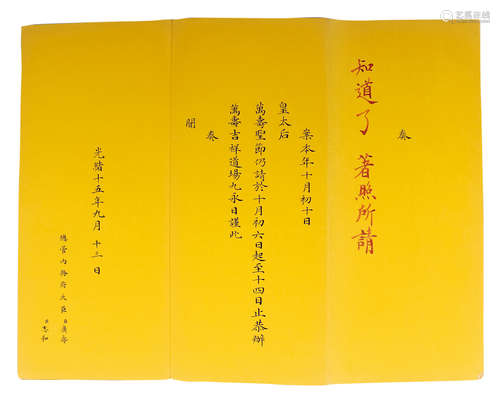 奏
知道了 著照所請
案本年十月初十日
皇太后
萬壽聖節仍請於十月初六日起至十四日止恭辦
萬壽吉祥道場九永日謹此
奏
聞
光緒十五年九月 十三 日
總管內務府大臣臣廣壽
臣志和